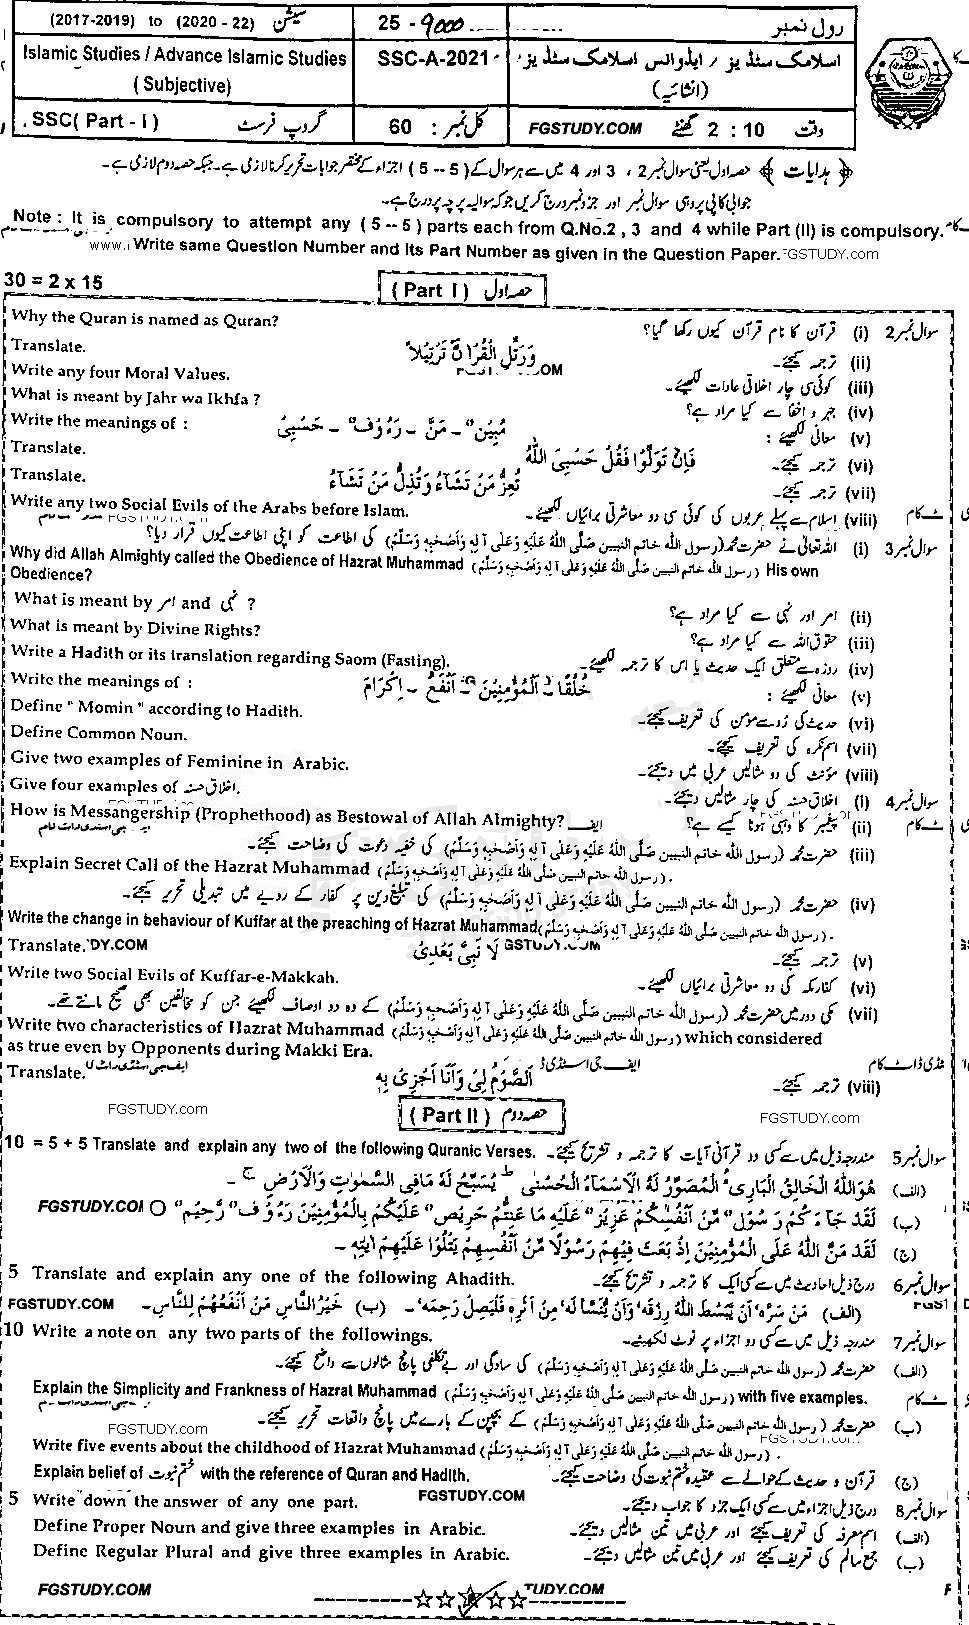 (2017-2019) to (2020 - 22) سیشن 25 - 9000 رول نمبر
Islamic Studies / Advance Islamic Studies SSC-A-2021 اسلامک سٹڈیز / ایڈوانس اسلامک سٹڈیز
( Subjective) (انشائیہ)
SSC( Part - I ) گروپ فرسٹ کل نمبر : 60 FGSTUDY.COM وقت 2 : 10 گھنٹے
﴿ ہدایات ﴾ حصہ اول یعنی سوال نمبر 2 ، 3 اور 4 میں سے ہر سوال کے ( 5 -- 5 ) اجزاء کے مختصر جوابات تحریر کرنا لازمی ہے ۔ جبکہ حصہ دوم لازمی ہے ۔
جوابی کاپی پر وہی سوال نمبر اور جزو نمبر درج کریں جو کہ سوالیہ پرچہ پر درج ہے۔
Note : It is compulsory to attempt any ( 5 -- 5 ) parts each from Q.No.2 , 3 and 4 while Part (II) is compulsory.
www. Write same Question Number and its Part Number as given in the Question Paper. FGSTUDY.com
30 = 2 x 15 ( Part I ) حصہ اول
Why the Quran is named as Quran? سوال نمبر 2 (i) قرآن کا نام قرآن کیوں رکھا گیا؟
Translate. وَرَتِّلِ الْقُرْاٰنَ تَرْتِيْلاً (ii) ترجمہ کیجئے۔
Write any four Moral Values. (iii) کوئی سی چار اخلاقی عادات لکھیئے۔
What is meant by Jahr wa Ikhfa ? (iv) جہر و اخفا سے کیا مراد ہے؟
Write the meanings of : مُبِيْن" ۔ مَنَّ ۔ رَءُوْف" ۔ حَسْبِىَ (v) معانی لکھیئے :
Translate. فَاِنْ تَوَلَّوْا فَقُلْ حَسْبِىَ اللّٰهُ (vi) ترجمہ کیجئے۔
Translate. تُعِزُّ مَنْ تَشَآءُ وَتُذِلُّ مَنْ تَشَآءُ (vii) ترجمہ کیجئے۔
Write any two Social Evils of the Arabs before Islam. (viii) اسلام سے پہلے عربوں کی کوئی سی دو معاشرتی برائیاں لکھیئے۔
سوال نمبر 3 (i) اللہ تعالیٰ نے حضرت محمد (رسول اللہ خاتم النبیین صَلَّی اللہُ عَلَیْہِ وَعَلٰی آلِہٖ وَاَصْحَابِہٖ وَسَلَّمَ) کی اطاعت کو اپنی اطاعت کیوں قرار دیا؟
Why did Allah Almighty called the Obedience of Hazrat Muhammad (رسول اللہ خاتم النبیین صَلَّی اللہُ عَلَیْہِ وَعَلٰی آلِہٖ وَاَصْحَابِہٖ وَسَلَّمَ) His own
Obedience?
What is meant by امر and نہی ? (ii) امر اور نہی سے کیا مراد ہے؟
What is meant by Divine Rights? (iii) حقوق اللہ سے کیا مراد ہے؟
Write a Hadith or its translation regarding Saom (Fasting). (iv) روزہ سے متعلق ایک حدیث یا اس کا ترجمہ لکھیئے۔
Write the meanings of : خُلُقًا ۔ اَلْمُؤْمِنِيْنَ ۔ اَنْفَعُ ۔ اِكْرَامَ (v) معانی لکھیئے :
Define " Momin " according to Hadith. (vi) حدیث کی رُو سے مومن کی تعریف کیجئے۔
Define Common Noun. (vii) اسم نکرہ کی تعریف کیجئے۔
Give two examples of Feminine in Arabic. (viii) مؤنث کی دو مثالیں عربی میں دیجئے۔
Give four examples of اخلاق حسنہ. سوال نمبر 4 (i) اخلاق حسنہ کی چار مثالیں دیجئے۔
How is Messangership (Prophethood) as Bestowal of Allah Almighty? (ii) پیغمبر کا وہبی ہونا کیسے ہے؟
(iii) حضرت محمد (رسول اللہ خاتم النبیین صَلَّی اللہُ عَلَیْہِ وَعَلٰی آلِہٖ وَاَصْحَابِہٖ وَسَلَّمَ) کی خفیہ دعوت کی وضاحت کیجئے۔
Explain Secret Call of the Hazrat Muhammad (رسول اللہ خاتم النبیین صَلَّی اللہُ عَلَیْہِ وَعَلٰی آلِہٖ وَاَصْحَابِہٖ وَسَلَّمَ) .
(iv) حضرت محمد (رسول اللہ خاتم النبیین صَلَّی اللہُ عَلَیْہِ وَعَلٰی آلِہٖ وَاَصْحَابِہٖ وَسَلَّمَ) کی تبلیغ دین پر کفار کے رویے میں تبدیلی تحریر کیجئے۔
Write the change in behaviour of Kuffar at the preaching of Hazrat Muhammad (رسول اللہ خاتم النبیین صَلَّی اللہُ عَلَیْہِ وَعَلٰی آلِہٖ وَاَصْحَابِہٖ وَسَلَّمَ) .
Translate. DY.COM لَا نَبِىَّ بَعْدِىْ GSTUDY.COM (v) ترجمہ کیجئے۔
Write two Social Evils of Kuffar-e-Makkah. (vi) کفار مکہ کی دو معاشرتی برائیاں لکھیئے۔
(vii) مکی دور میں حضرت محمد (رسول اللہ خاتم النبیین صَلَّی اللہُ عَلَیْہِ وَعَلٰی آلِہٖ وَاَصْحَابِہٖ وَسَلَّمَ) کے وہ دو اوصاف لکھیئے جن کو مخالفین بھی صحیح مانتے تھے۔
Write two characteristics of Hazrat Muhammad (رسول اللہ خاتم النبیین صَلَّی اللہُ عَلَیْہِ وَعَلٰی آلِہٖ وَاَصْحَابِہٖ وَسَلَّمَ) which considered
as true even by Opponents during Makki Era.
Translate. اَلصَّوْمُ لِىْ وَاَنَا اَجْزِىْ بِهٖ (viii) ترجمہ کیجئے۔
FGSTUDY.com ( Part II ) حصہ دوم FGSTUDY.com
10 = 5 + 5 Translate and explain any two of the following Quranic Verses. سوال نمبر 5 مندرجہ ذیل میں سے کسی دو قرآنی آیات کا ترجمہ و تشریح کیجئے۔
(الف) هُوَ اللّٰهُ الْخَالِقُ الْبَارِئُ الْمُصَوِّرُ لَهُ الْاَسْمَآءُ الْحُسْنٰى ط يُسَبِّحُ لَهٗ مَا فِى السَّمٰوٰتِ وَالْاَرْضِ ج ۔
(ب) لَقَدْ جَآءَ كُمْ رَسُوْل" مِّنْ اَنْفُسِكُمْ عَزِيْز" عَلَيْهِ مَا عَنِتُّمْ حَرِيْص" عَلَيْكُمْ بِالْمُؤْمِنِيْنَ رَءُوْف" رَّحِيْم" O FGSTUDY.COM
(ج) لَقَدْ مَنَّ اللّٰهُ عَلَى الْمُؤْمِنِيْنَ اِذْ بَعَثَ فِيْهِمْ رَسُوْلًا مِّنْ اَنْفُسِهِمْ يَتْلُوْا عَلَيْهِمْ اٰيٰتِهٖ ۔
5 Translate and explain any one of the following Ahadith. سوال نمبر 6 درج ذیل احادیث میں سے کسی ایک کا ترجمہ و تشریح کیجئے۔
FGSTUDY.COM (الف) مَنْ سَرَّهٗ اَنْ يَّبْسُطَ اللّٰهُ رِزْقَهٗ وَاَنْ يُّنْسَأَ لَهٗ مِنْ اَثَرِهٖ فَلْيَصِلْ رَحِمَهٗ ۔ (ب) خَيْرُ النَّاسِ مَنْ اَنْفَعُهُمْ لِلنَّاسِ ۔
10 Write a note on any two parts of the followings. سوال نمبر 7 مندرجہ ذیل میں سے کسی دو اجزاء پر نوٹ لکھیئے۔
(الف) حضرت محمد (رسول اللہ خاتم النبیین صَلَّی اللہُ عَلَیْہِ وَعَلٰی آلِہٖ وَاَصْحَابِہٖ وَسَلَّمَ) کی سادگی اور بے تکلفی پانچ مثالوں سے واضح کیجئے۔
Explain the Simplicity and Frankness of Hazrat Muhammad (رسول اللہ خاتم النبیین صَلَّی اللہُ عَلَیْہِ وَعَلٰی آلِہٖ وَاَصْحَابِہٖ وَسَلَّمَ) with five examples.
FGSTUDY.com (ب) حضرت محمد (رسول اللہ خاتم النبیین صَلَّی اللہُ عَلَیْہِ وَعَلٰی آلِہٖ وَاَصْحَابِہٖ وَسَلَّمَ) کے بچپن کے بارے میں پانچ واقعات تحریر کیجئے۔
Write five events about the childhood of Hazrat Muhammad (رسول اللہ خاتم النبیین صَلَّی اللہُ عَلَیْہِ وَعَلٰی آلِہٖ وَاَصْحَابِہٖ وَسَلَّمَ) .
Explain belief of ختم نبوت with the reference of Quran and Hadith. (ج) قرآن و حدیث کے حوالے سے عقیدہ ختم نبوت کی وضاحت کیجئے۔
5 Write down the answer of any one part. FGSTUDY.COM سوال نمبر 8 درج ذیل اجزاء میں سے کسی ایک جزو کا جواب دیجئے۔
Define Proper Noun and give three examples in Arabic. (الف) اسم معرفہ کی تعریف کیجئے اور عربی میں تین مثالیں دیجئے۔
Define Regular Plural and give three examples in Arabic. (ب) جمع سالم کی تعریف کیجئے اور عربی میں تین مثالیں دیجئے۔
FGSTUDY.COM TUDY.COM